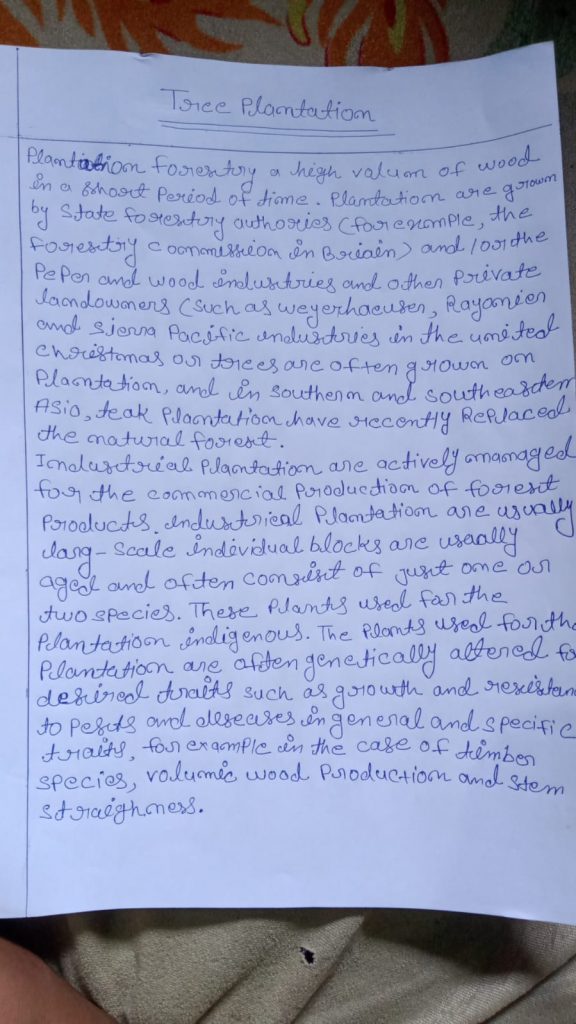 Tree Plantation
Plantation forestry a high valum of wood
in a short Period of time. Plantation are grown
by State forestry authories (for exomple, the
forestry commission in Briain) and /or the
PePer and wood industries and other Private
landowners (such as weyerhaeuser, Rayonier
and sierra Pacific industries in the united
christmas or trees are often grown on
Plantation, and in southern and southeastern
Asia, teak Plantation have recently RePlaced
the natural forest.
Industrial Plantation are actively managed
for the commercial Production of forest
Products. industrical Plantation are usually
larg-scale individual blocks are usually
aged and often consist of just one or
two species. These Plants used for the
Plantation indigenous. The Plants used for the
Plantation are often genetically altered fo
desired traits such as growth and resistan
to Pests and diseases in general and specific
traits, for example in the case of timber
species, volumic wood Production and stem
straighness.